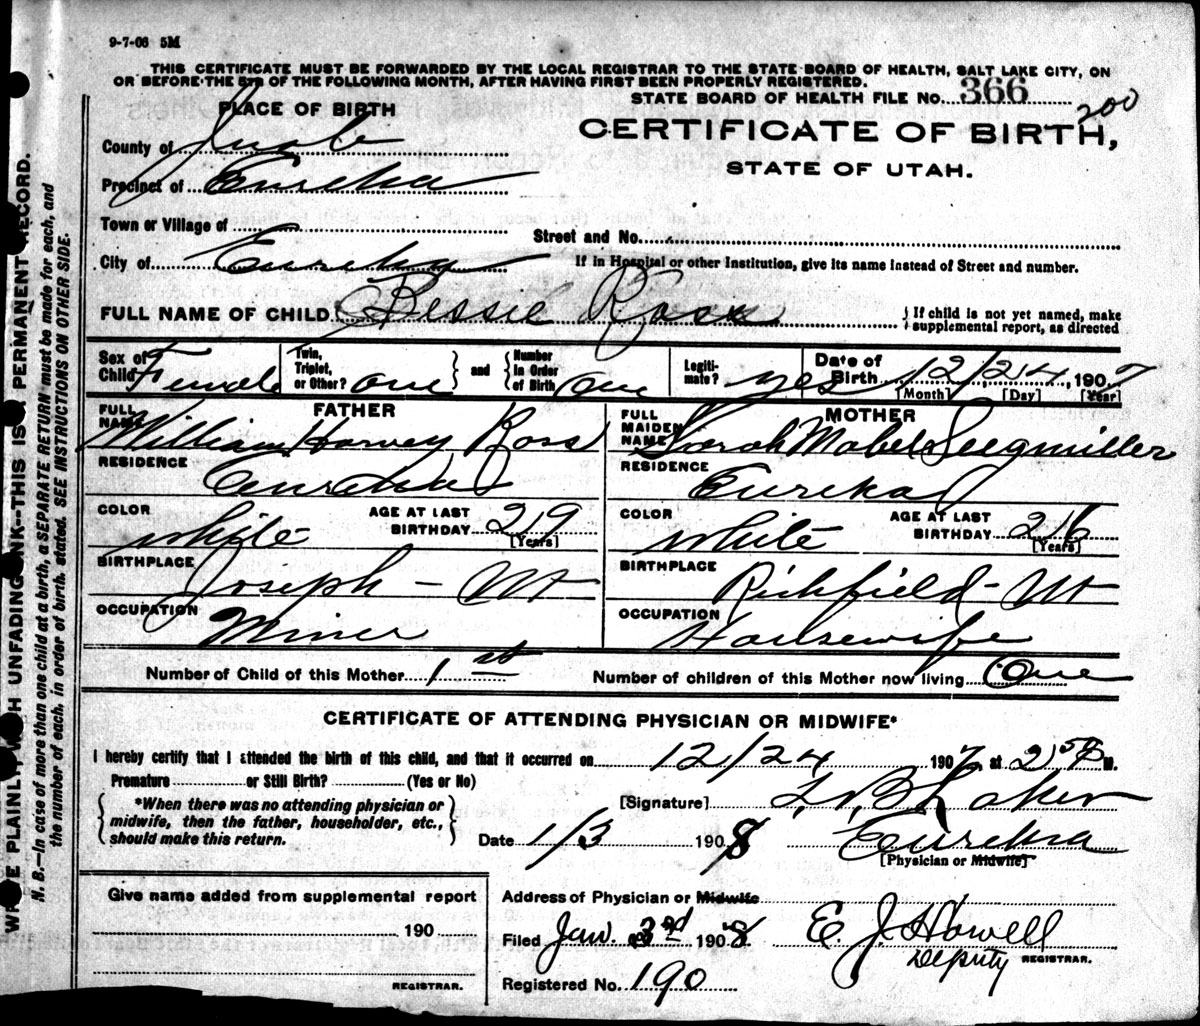 9-7-06 5M
THIS CERTIFICATE MUST BE FORWARDED BY THE LOCAL REGISTRAR TO THE STATE BOARD OF HEALTH, SALT LAKE CITY, ON
OR BEFORE THE 5TH OF THE FOLLOWING MONTH, AFTER HAVING FIRST BEEN PROPERLY REGISTERED.
STATE BOARD OF HEALTH FILE NO. 366
200
PLACE OF BIRTH
CERTIFICATE OF BIRTH,
STATE OF UTAH.
County of Juab
Precinct of Eureka
Town or Village of
Street and No.
City of Eureka
If in Hospital or other Institution, give its name instead of Street and number.
FULL NAME OF CHILD Bessie Ross
{ If child is not yet named, make
supplemental report, as directed
Sex of Child Female
Twin, Triplet, or Other? one } and { Number In Order of Birth one
Legitimate? yes
Date of Birth 12/24, 1907
[Month] [Day] [Year]
FATHER
FULL NAME William Harvey Ross
RESIDENCE Eureka
COLOR White
AGE AT LAST BIRTHDAY 29 [Years]
BIRTHPLACE Joseph - Ut
OCCUPATION Miner
MOTHER
FULL MAIDEN NAME Sarah Mabel Seegmiller
RESIDENCE Eureka
COLOR White
AGE AT LAST BIRTHDAY 26 [Years]
BIRTHPLACE Richfield - Ut
OCCUPATION Housewife
Number of Child of this Mother 1st
Number of children of this Mother now living One
CERTIFICATE OF ATTENDING PHYSICIAN OR MIDWIFE*
I hereby certify that I attended the birth of this child, and that it occurred on 12/24 1907, at 2 M.
Premature or Still Birth? (Yes or No)
{ *When there was no attending physician or
midwife, then the father, householder, etc.,
should make this return. }
[Signature]
Date 1/3 1908
Eureka
[Physician or Midwife]
Give name added from supplemental report
190
REGISTRAR.
Address of Physician or Midwife
Filed Jan. 3rd 1908.
E. J. Howell
Deputy REGISTRAR.
Registered No. 190
WRITE PLAINLY WITH UNFADING INK—THIS IS A PERMANENT RECORD.
N. B.—In case of more than one child at a birth, a SEPARATE RETURN must be made for each, and
the number of each, in order of birth, stated. SEE INSTRUCTIONS ON OTHER SIDE.